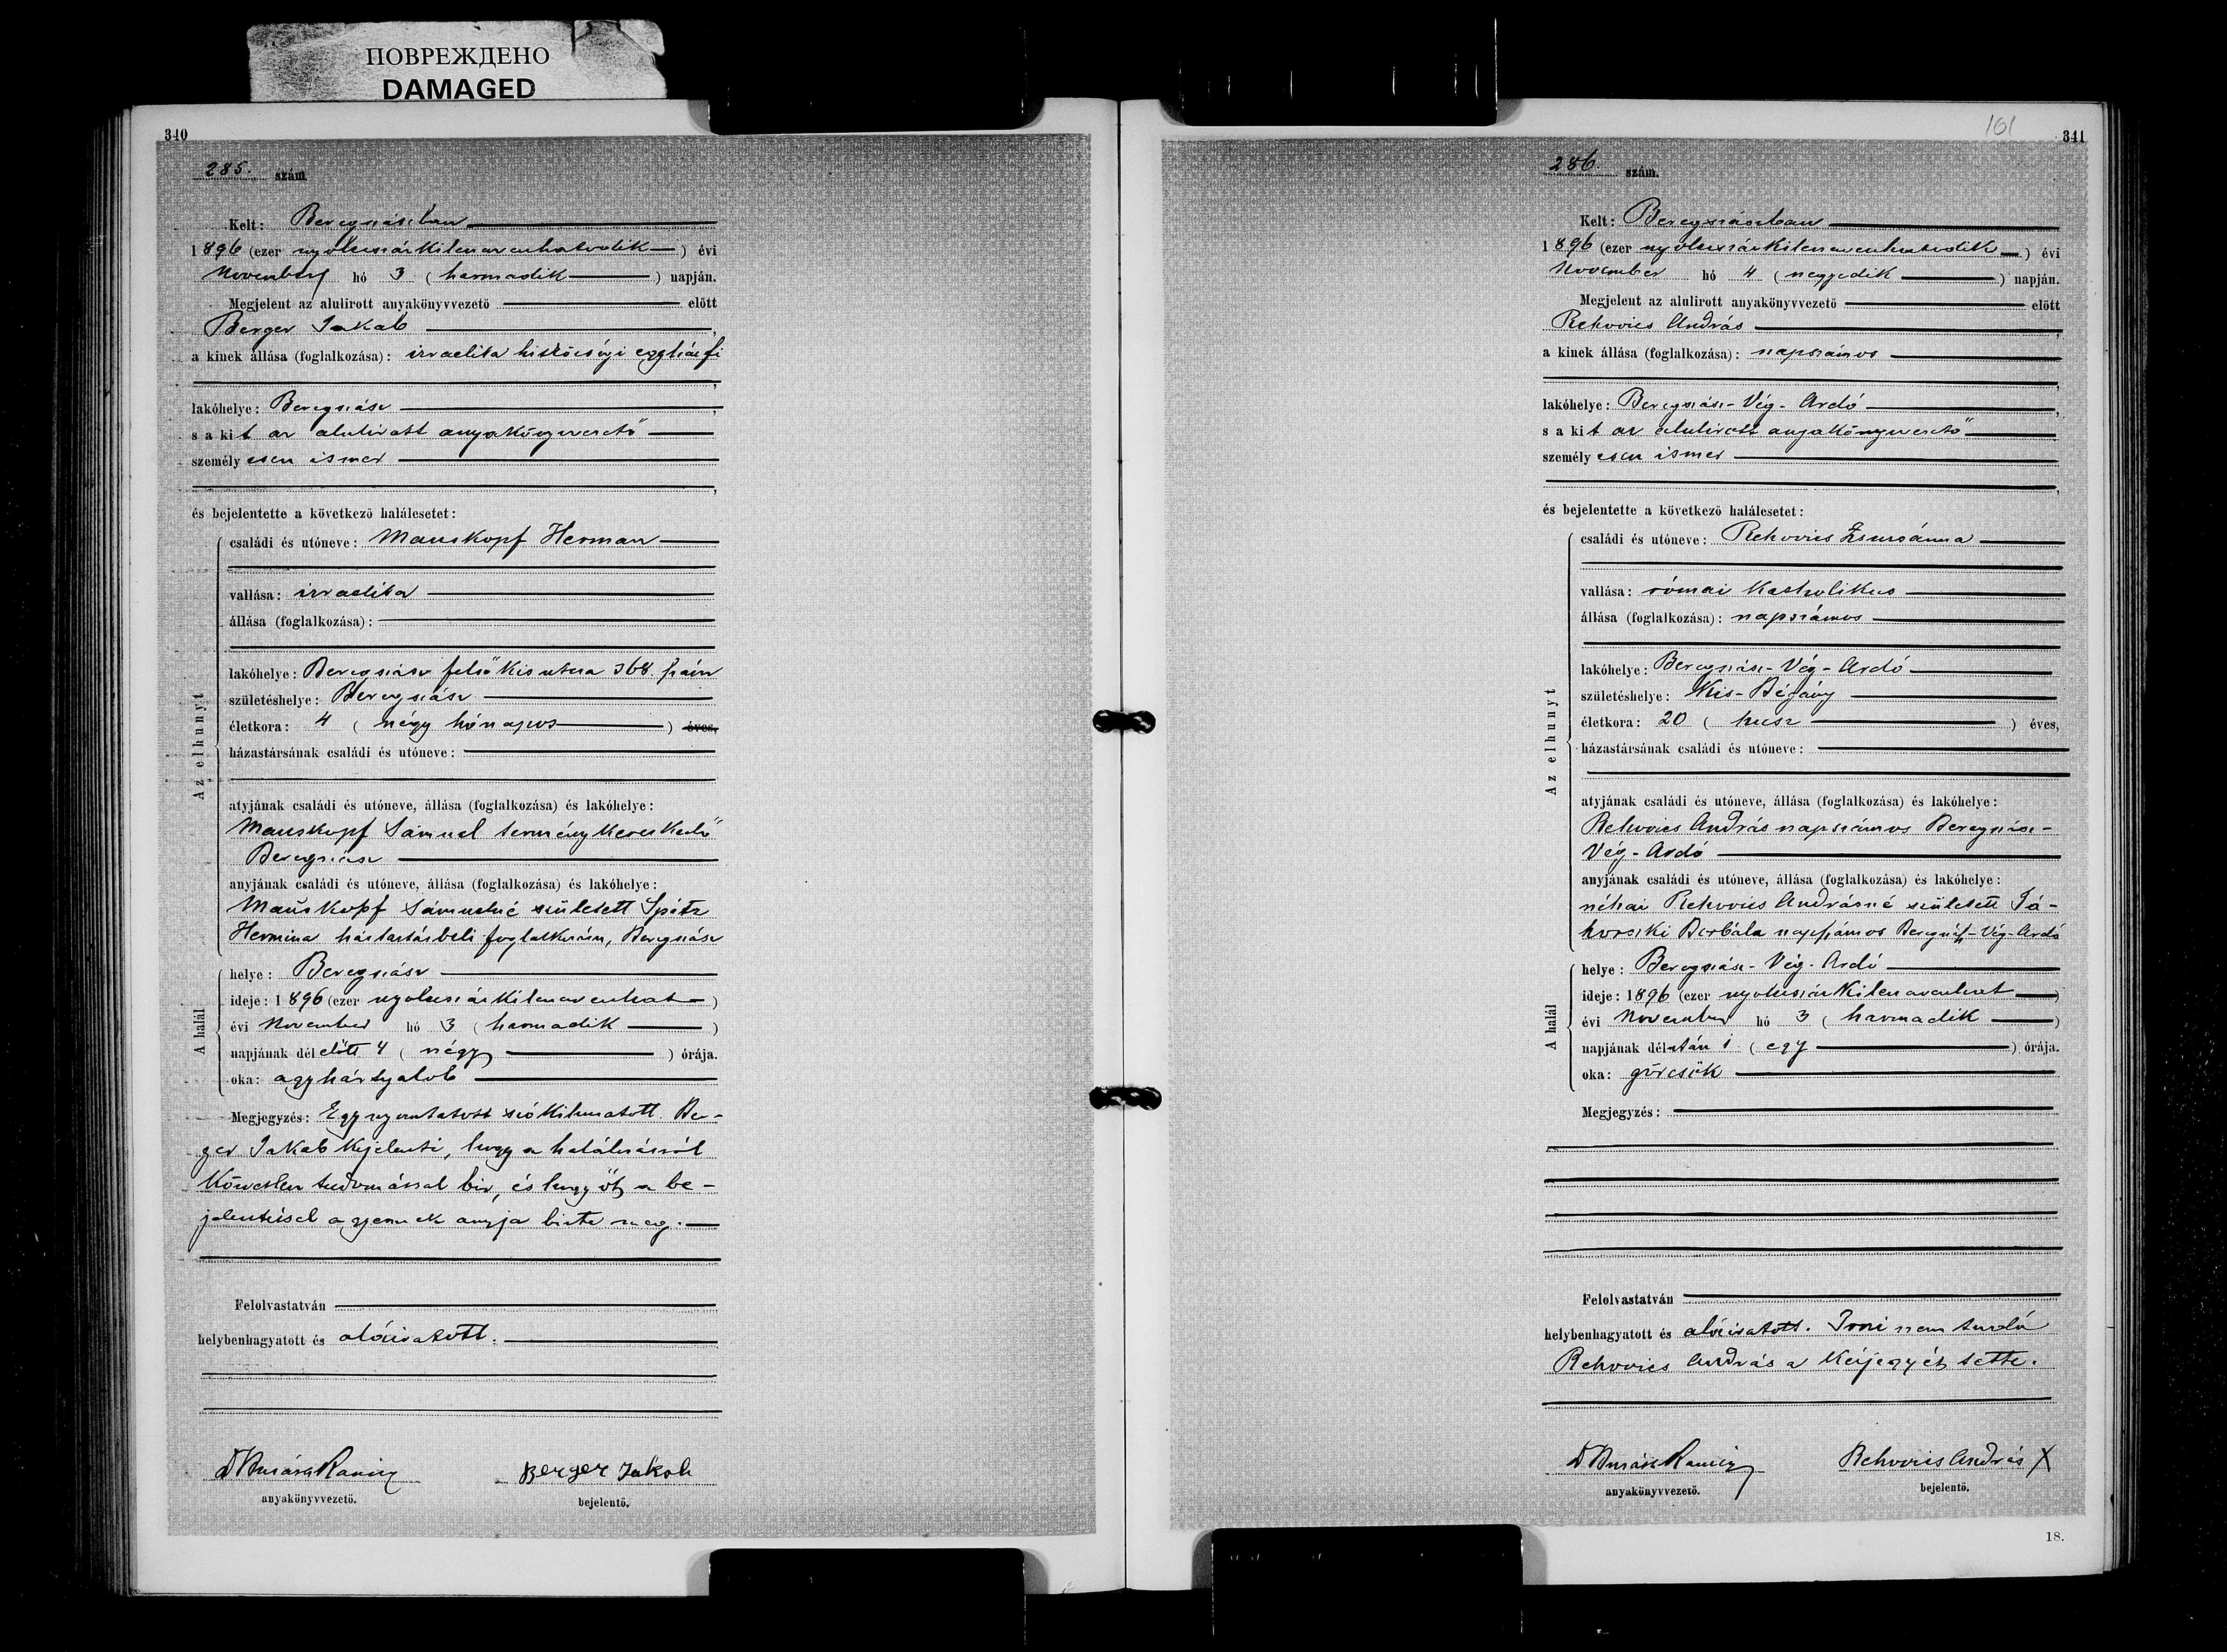 ПОВРЕЖДЕНО
DAMAGED
340
285. szám.
Kelt: Beregszászban
1896 (ezer nyolcszázkilencvenhatodik) évi
November hó 3 (harmadik) napján.
Megjelent az alulirott anyakönyvvezető előtt
Berger Jakab,
a kinek állása (foglalkozása): izraelita hitközségi egyházfi
lakóhelye: Beregszász,
s a kit az alulirott anyakönyvvezető
személyesen ismer,
és bejelentette a következő halálesetet:
Az elhunyt
családi és utóneve: Mauskopf Herman
vallása: izraelita
állása (foglalkozása):
lakóhelye: Beregszász felső kis utcza 368. szám
születéshelye: Beregszász
életkora: 4 (négy hónapos) éves,
házastársának családi és utóneve:
atyjának családi és utóneve, állása (foglalkozása) és lakóhelye:
Mauskopf Sámuel terménykereskedő
Beregszász
anyjának családi és utóneve, állása (foglalkozása) és lakóhelye:
Mauskopf Sámuelné született Spitz
Hermina háztartásbeli foglalkozású, Beregszász
A halál
helye: Beregszász
ideje: 1896 (ezer nyolcszázkilencvenhat)
évi November hó 3 (harmadik)
napjának délelőtt 4 (négy) órája.
oka: agyhártyalob
Megjegyzés: Egy nyomtatott szó kihuzatott. Ber-
ger Jakab kijelenti, hogy a halálozásról
közvetlen tudomással bir, és hogy őt a be-
jelentéssel a gyermek anyja bizta meg.
Felolvastatván
helybenhagyatott és aláiratott.
anyakönyvvezető.
Berger Jakob
bejelentő.
161
341
286. szám.
Kelt: Beregszászban
1896 (ezer nyolcszázkilencvenhatodik) évi
November hó 4 (negyedik) napján.
Megjelent az alulirott anyakönyvvezető előtt
Rehovics András,
a kinek állása (foglalkozása): napszámos
lakóhelye: Beregszász-Vég-Ardó,
s a kit az alulirott anyakönyvvezető
személyesen ismer,
és bejelentette a következő halálesetet:
Az elhunyt
családi és utóneve: Rehovics Zsuzsánna
vallása: római katholikus
állása (foglalkozása): napszámos
lakóhelye: Beregszász-Vég-Ardó
születéshelye: Kis-Bégány
életkora: 20 (husz) éves,
házastársának családi és utóneve:
atyjának családi és utóneve, állása (foglalkozása) és lakóhelye:
Rehovics András napszámos Beregszász-
Vég-Ardó
anyjának családi és utóneve, állása (foglalkozása) és lakóhelye:
néhai Rehovics Andrásné született Já-
Borbála napszámos Beregszász-Vég-Ardó
A halál
helye: Beregszász-Vég-Ardó
ideje: 1896 (ezer nyolcszázkilencvenhat)
évi November hó 3 (harmadik)
napjának délután 1 (egy) órája.
oka: görcsök
Megjegyzés:
Felolvastatván
helybenhagyatott és aláiratott. Irni nem tudó
Rehovics András a kézjegyét tette.
anyakönyvvezető.
Rehovics András X
bejelentő.
18.